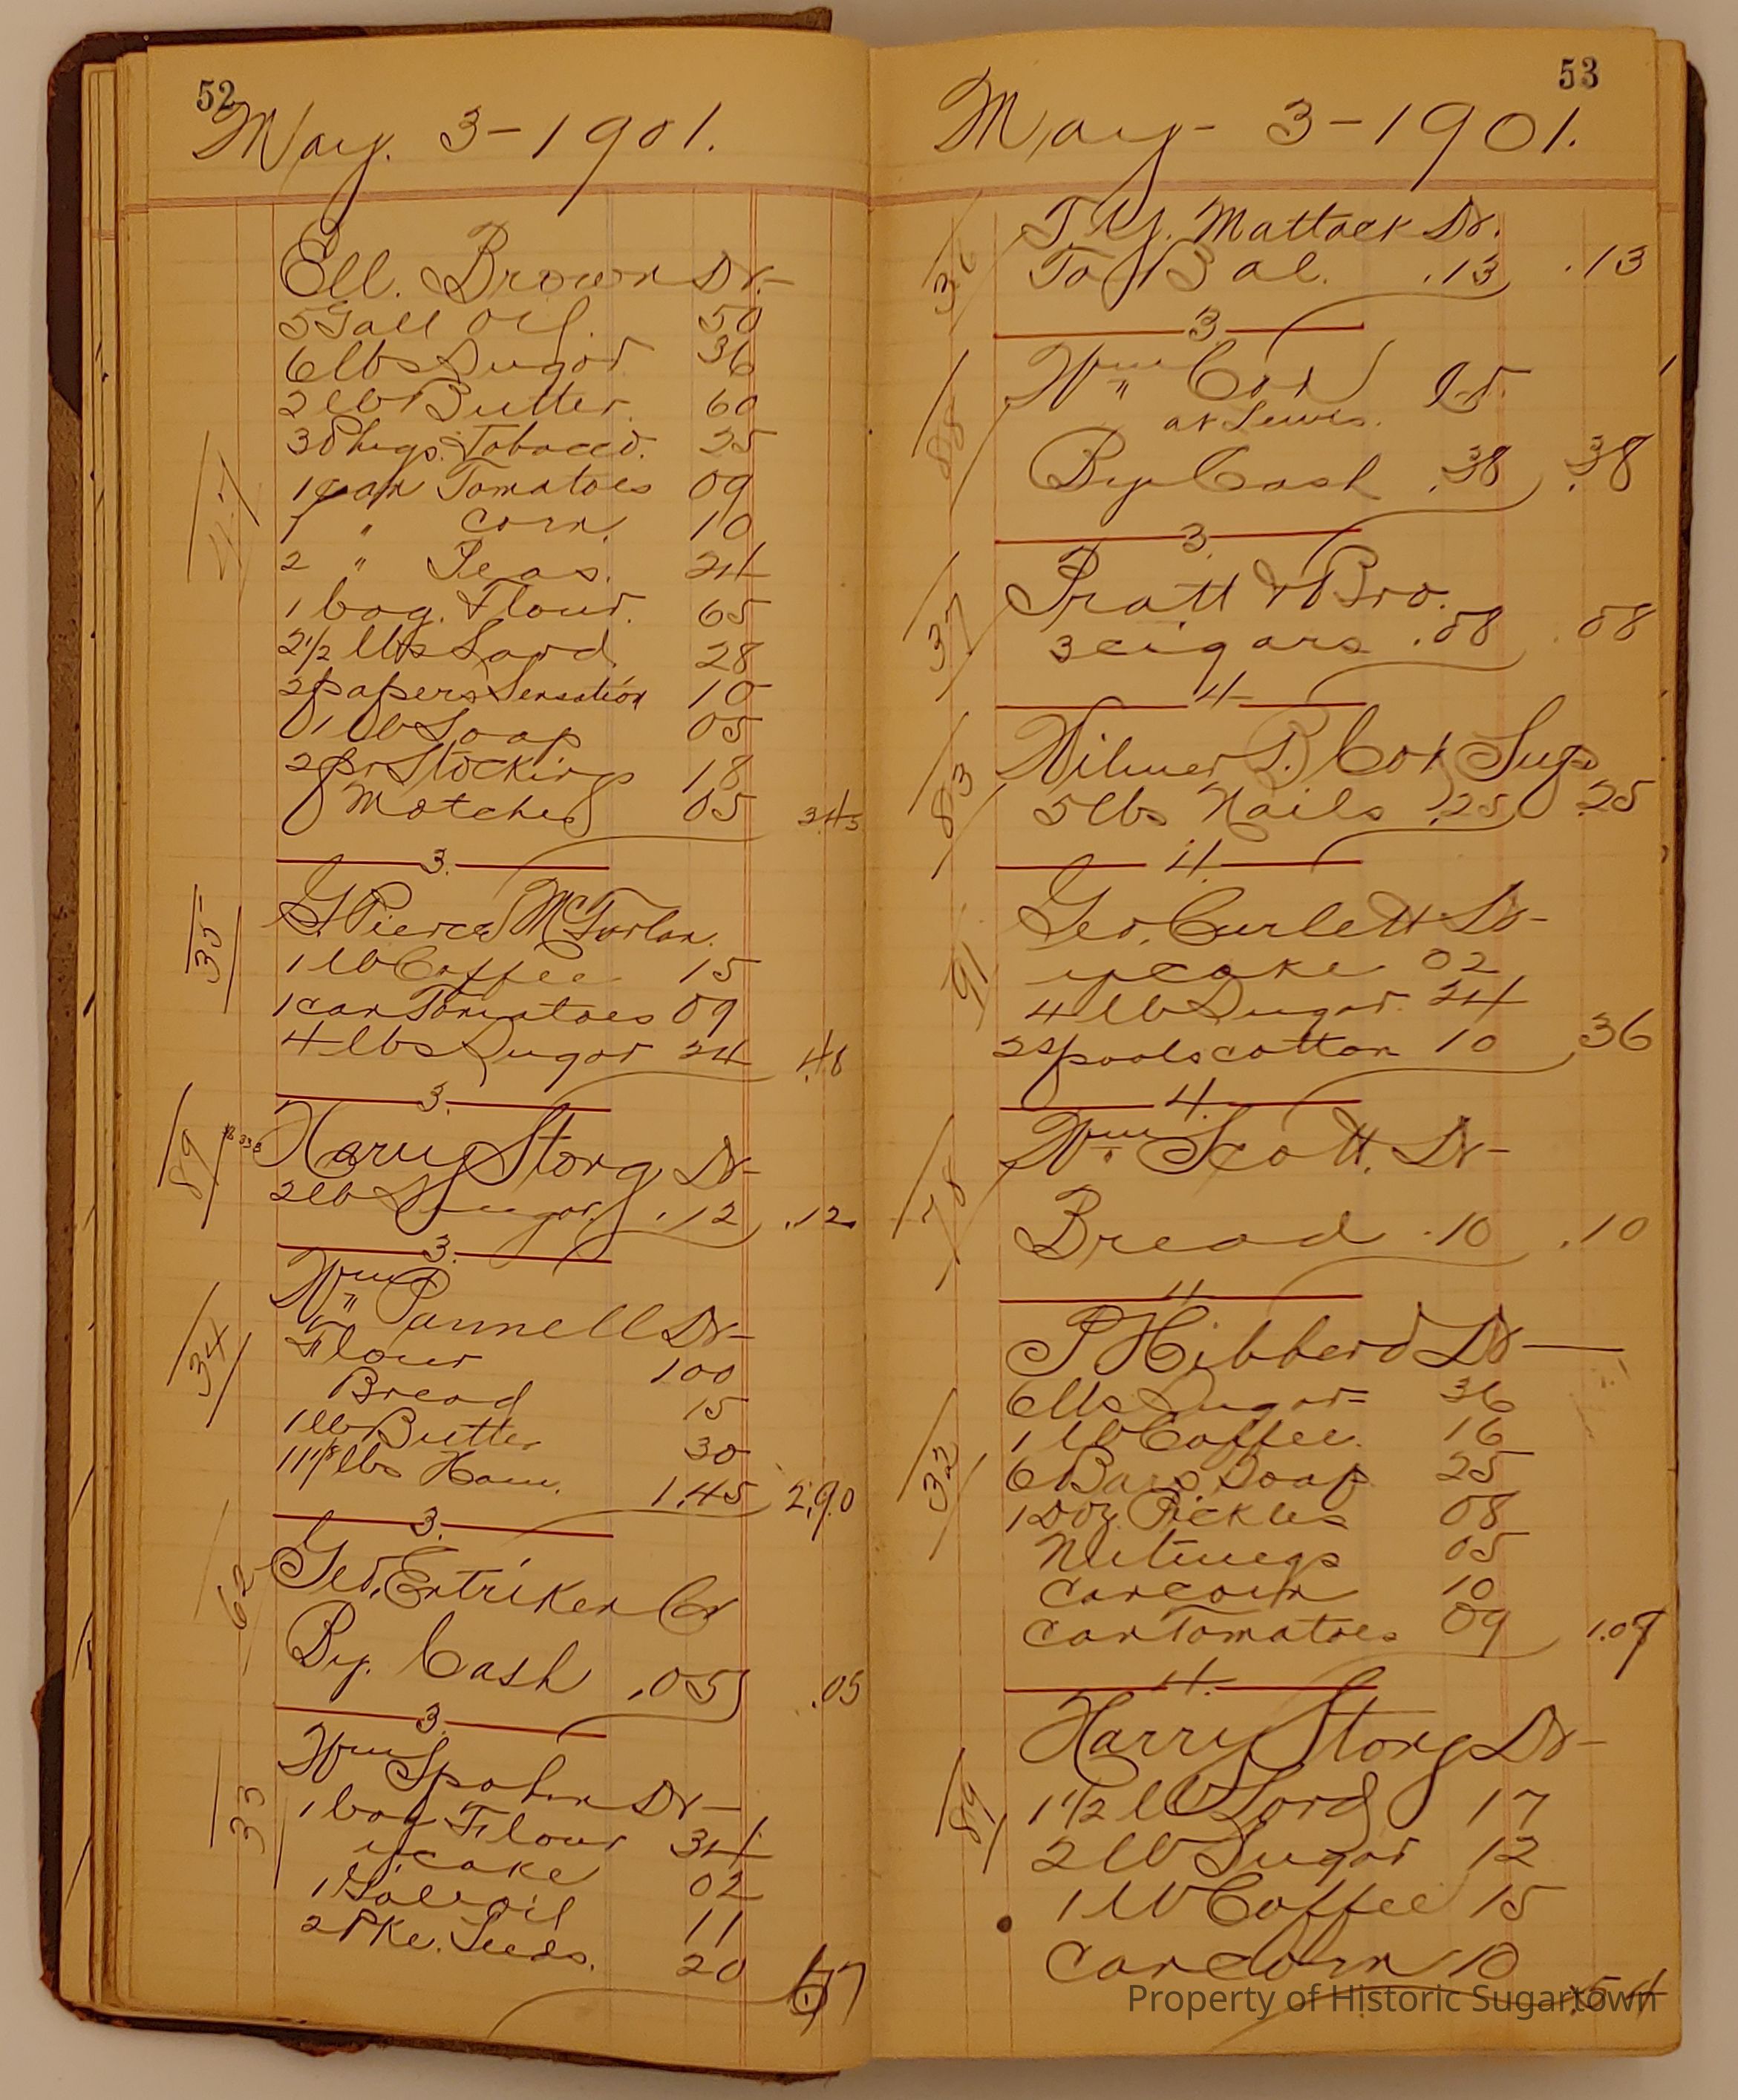 52
May. 3-1901.
Ell. Brown Dr-
5 Gall Oil. 50
6 lbs Sugar 36
2 lb Butter. 60
3 Phgs. Tobacco. 25
47
1 can Tomatoes 09
1 " corn. 10
2 " Peas. 24
1 bag. Flour. 65
2 1/2 lbs Lard. 28
2 papers Sensation 10
1 lb Soap 05
2 pr Stockings 18
Matches 05 3.45
3.
35
G. Pierce McFarlan.
1 lb Coffee 15
1 can Tomatoes 09
4 lbs Sugar 24 .48
3.
89
Harry Stong Dr-
2 lb Sugar. .12 .12
3.
34
Wm Pannell Dr-
Flour 100
Bread 15
1 lb Butter 30
11 1/8 lbs Ham. 1.45 2.90
3.
62
Geo. Entriken Cr
By. Cash .05 .05
3.
33
Wm Spohn Dr-
1 bag Flour 34
y. cake 02
1 Gall oil 11
2 Pke. Seeds. 20 67
53
May- 3-1901.
36
T. Y. Mattack Dr.
To Bal. .13 .13
3
88
Wm Cox Cr.
at Lewis.
By Cash .38 .38
3.
37
Pratt & Bro.
3 cigars .08 .08
4
83
Wilmer T. Cox Sup
5 lbs Nails .25 .25
4.
91
Geo. Curlett Dr-
y cake 02
4 lb Sugar. 24
2 spools cotton 10 36
4.
78
Wm. Scott. Dr-
Bread .10 .10
4
32
P Hibberd Dr-
6 lbs Sugar 36
1 lb Coffee. 16
6 Bars Soap 25
1 Doz. Pickles 08
Nutmegs 05
can corn 10
can Tomatoes 09 1.09
4.
89
Harry Stong Dr-
1 1/2 lb Lard 17
2 lb Sugar 12
1 lb Coffee 15
can Corn 10
.54
Property of Historic Sugartown